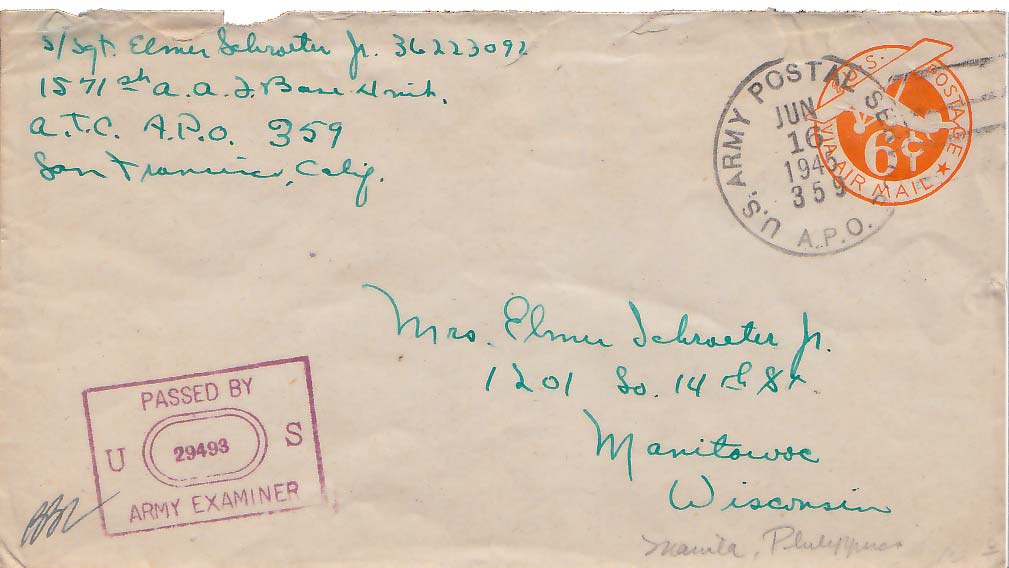 S/Sgt. Elmer Schroeter Jr. 36223092
1571st A.A.F. Base Unit,
A.T.C. A.P.O. 359
San Francisco, Calif.
U.S. ARMY POSTAL SERVICE
JUN
16
1945
359
A.P.O.
U.S. POSTAGE
6¢
VIA AIR MAIL
Mrs. Elmer Schroeter Jr.
1201 So. 14th St.
Manitowoc
Wisconsin
PASSED BY
U 29493 S
ARMY EXAMINER
Manila, Philippines